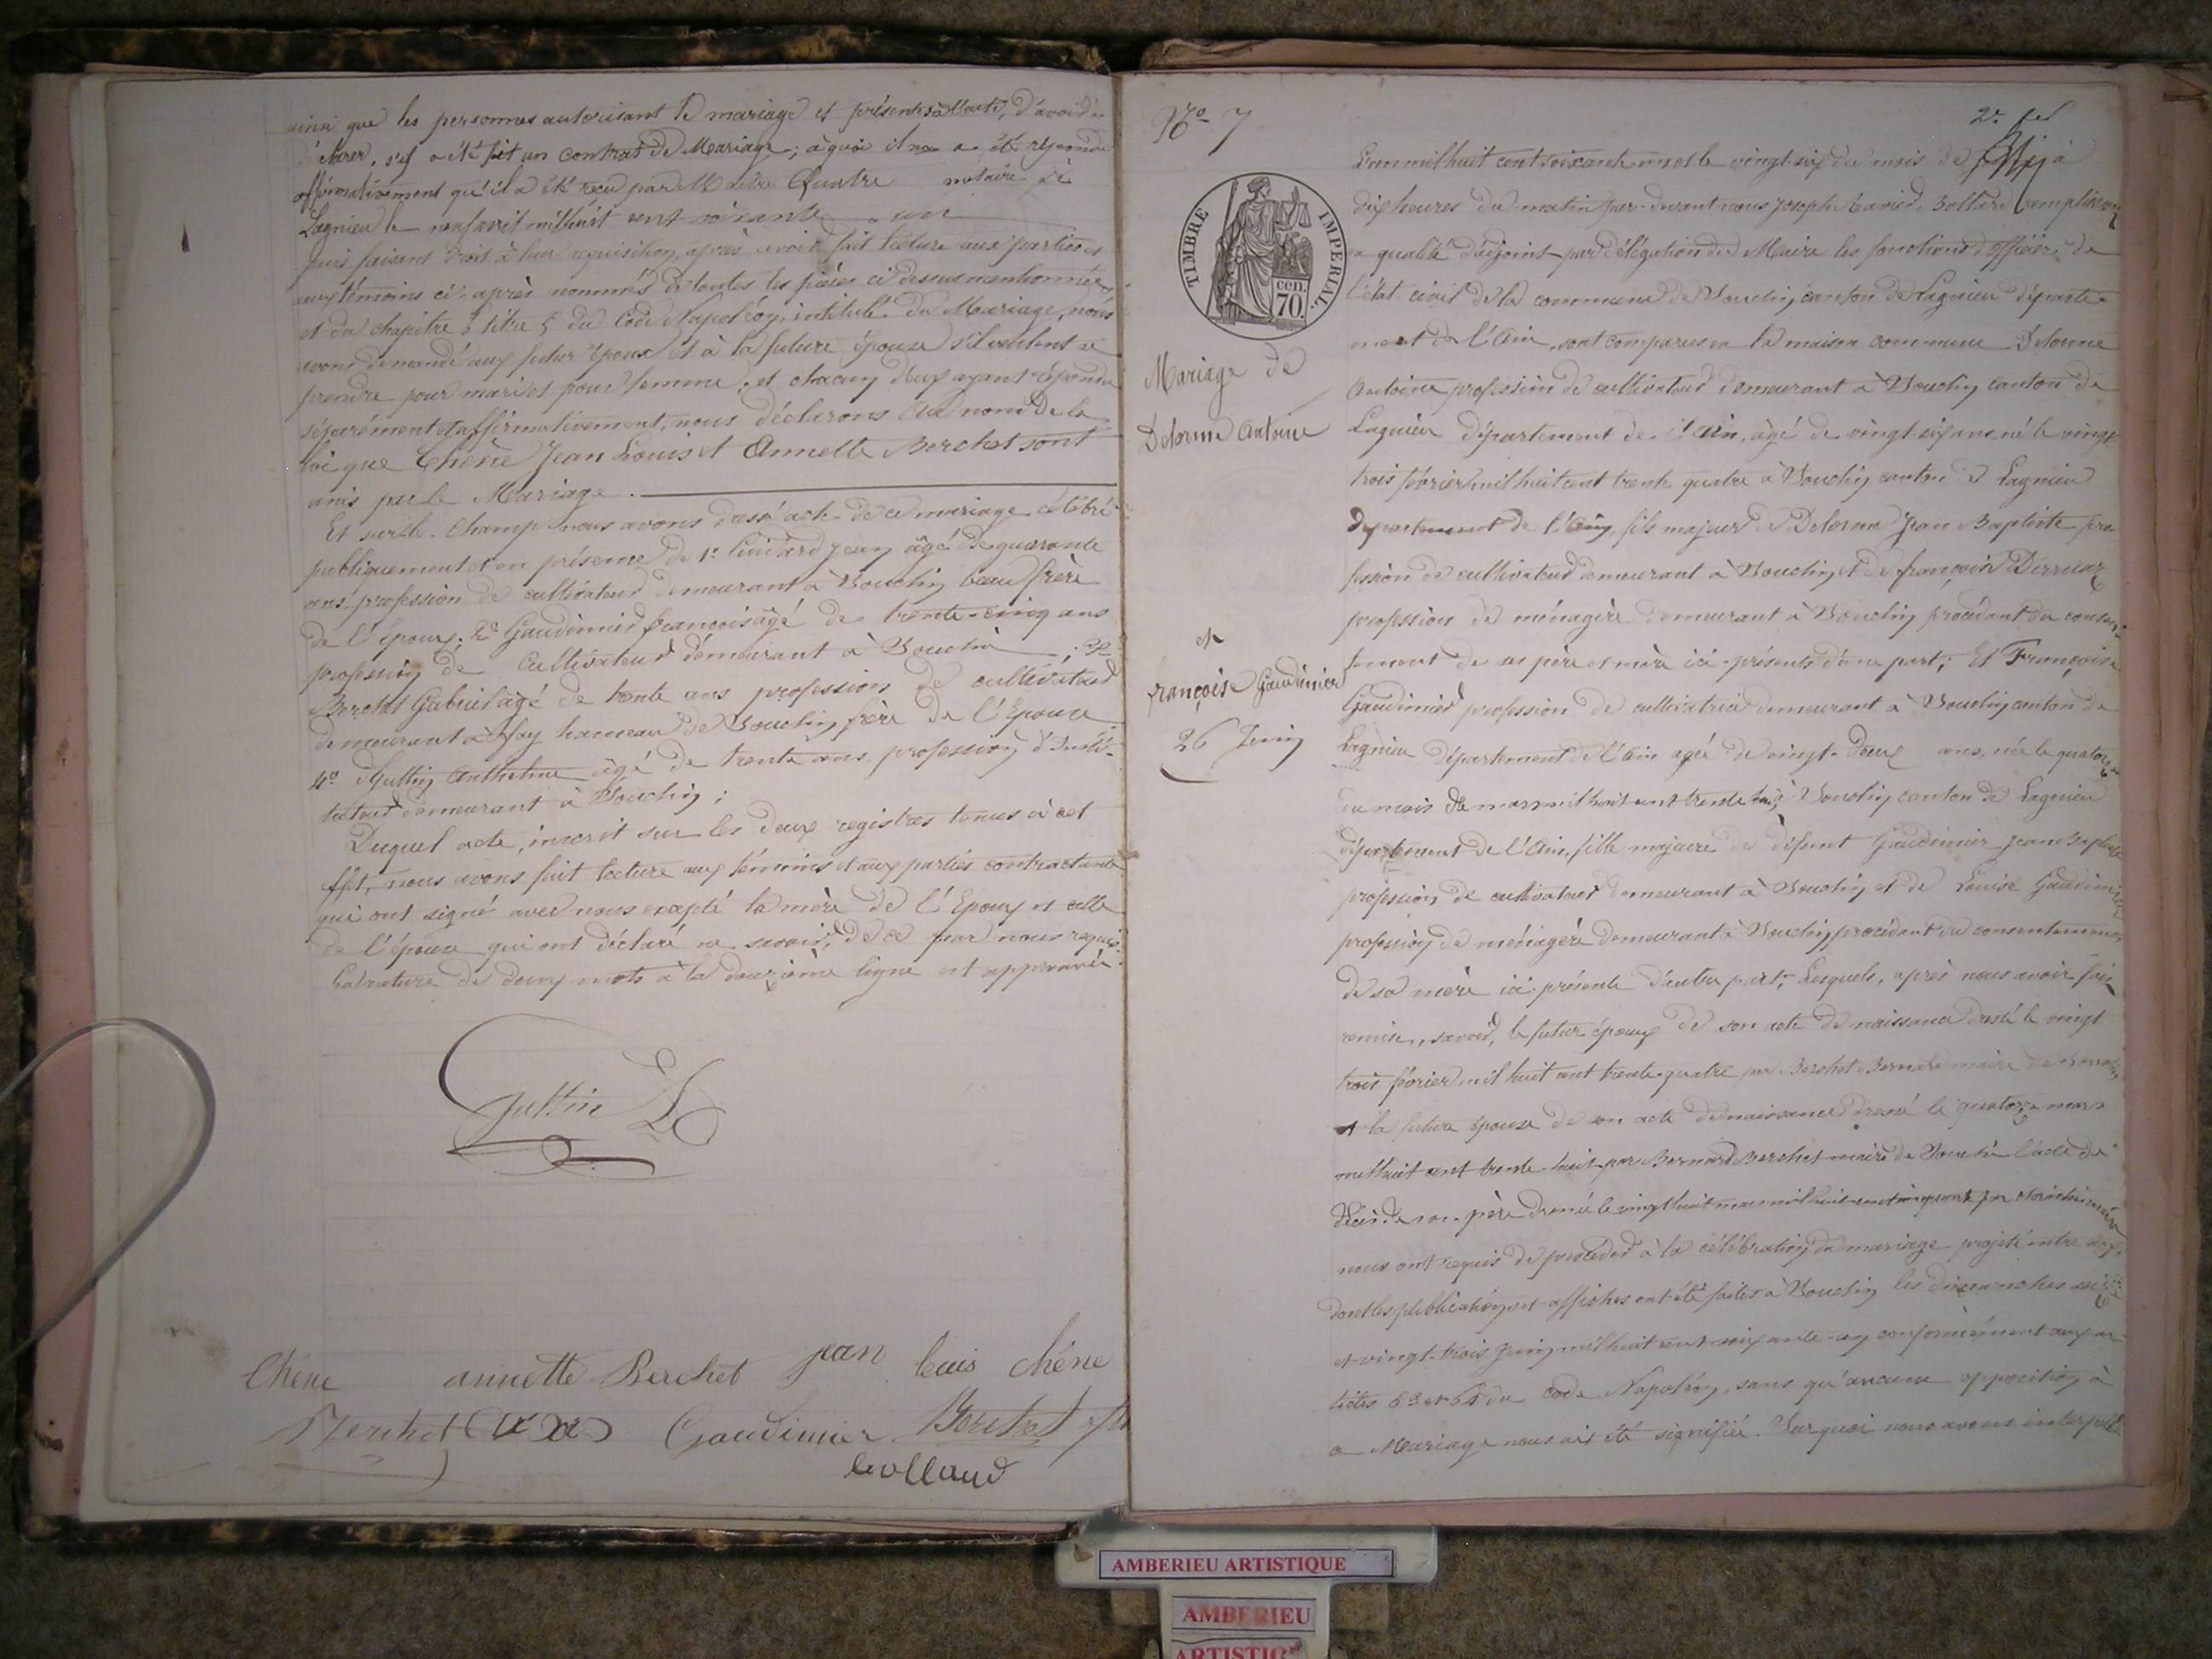 ainsi que les personnes autorisant le mariage et présentes à l'acte, d'avoir à
déclarer, s'il a été fait un contrat de Mariage; à quoi il nous a été répondu
affirmativement qu'il a été reçu par Maître Quatre notaire à
Lagnieu le mil huit cent soixante un
puis faisant droit à leur requisition, après avoir fait lecture aux parties et
aux témoins ci-après nommés de toutes les pièces ci dessus mentionnées
et du chapitre 6 titre 5 du Code Napoléon, intitulé du Mariage, nous
avons demandé aux futur époux et à la future épouse s'il veulent se
prendre pour mari et pour femme, et chacun d'eux ayant répondu
séparément et affirmativement, nous déclarons au nom de la
loi que Chêne Jean Louis et Annette Berchet sont
unis par le Mariage.
Et sur le champ nous avons dressé acte de ce mariage célébré
publiquement et en présence de 1° Jean âgé de quarante
ans profession de cultivateur demeurant à Souclin beau frère
de l'époux; 2° Gaudinier françois âgé de trente-cinq ans
profession de cultivateur demeurant à Souclin; 3°
Berchet Gabriel âgé de trente ans profession de cultivateur
demeurant à Fay hameau de Souclin frère de l'épouse
4° Guttin Anthelme âgé de trente ans profession d'Insti-
tuteur demeurant à Souclin;
Duquel acte, inscrit sur les deux registres tenus à cet
effet, nous avons fait lecture aux témoins et aux parties contractantes
qui ont signé avec nous excepté la mère de l'Epoux et celle
de l'épouse qui ont déclaré ne savoir, de ce par nous requis.
La rature de deux mots à la douzième ligne est approuvée.
Guttin
Chêne annette Berchet jean louis chêne
Berchet Gaudinier Berchet
bollaud
N° 7
2e
TIMBRE IMPERIAL.
cen.
70.
Mariage de
Delorme Antoine
et
françoise Gaudinier
26 Juin
L'an mil huit cent soixante un et le vingt-six du mois de Juin à
dix heures du matin par-devant nous Joseph remplissant
en qualité d'adjoint par délégation du Maire les fonctions d'officier de
l'état-civil de la commune de Souclin canton de Lagnieu départe-
ment de l'Ain, sont comparus en la maison commune Delorme
Antoine profession de cultivateur demeurant à Souclin canton de
Lagnieu département de l'Ain, âgé de vingt-six ans, né le vingt
trois février mil huit cent trente quatre à Souclin canton de Lagnieu
département de l'Ain, fils majeur de Delorme Jean Baptiste pro
fession de cultivateur demeurant à Souclin et de françoise
profession de ménagère demeurant à Souclin procédant du consen-
tement de ses père et mère ici-présents d'une part; Et Françoise
Gaudinier profession de cultivatrice demeurant à Souclin canton de
Lagnieu département de l'Ain agée de vingt-deux ans, née le quatorze
du mois de mars mil huit cent trente huit à Souclin canton de Lagnieu
département de l'Ain, fille majeure de défunt Gaudinier Jean Baptiste
profession de cultivateur demeurant à Souclin et de Louise Gaudinier
profession de ménagère demeurant à Souclin procédant du consentement
de sa mère ici-présente d'autre part; Lesquels, après nous avoir fait
remise, savoir, le futur époux de son acte de naissance dressé le vingt
trois février mil huit cent trente-quatre par Berchet Bernard maire de Souclin
et la future épouse de son acte de naissance dressé le quatorze mars
mil huit cent trente-huit par Bernard Berchet maire de Souclin l'acte de
décès de son père dressé le vingt huit mars mil huit cent cinquante par maire
nous ont requis de procéder à la célébration du mariage projeté entre eux,
dont les publications et affiches ont été faites à Souclin les dimanches seize
et vingt-trois Juin mil huit cent soixante-un conformément aux ar
ticles 63 et 64 du code Napoléon, sans qu'aucune opposition à
ce Mariage nous ait été signifiée. Sur quoi nous avons interpellé
AMBERIEU ARTISTIQUE
AMBERIEU
ARTISTIQUE